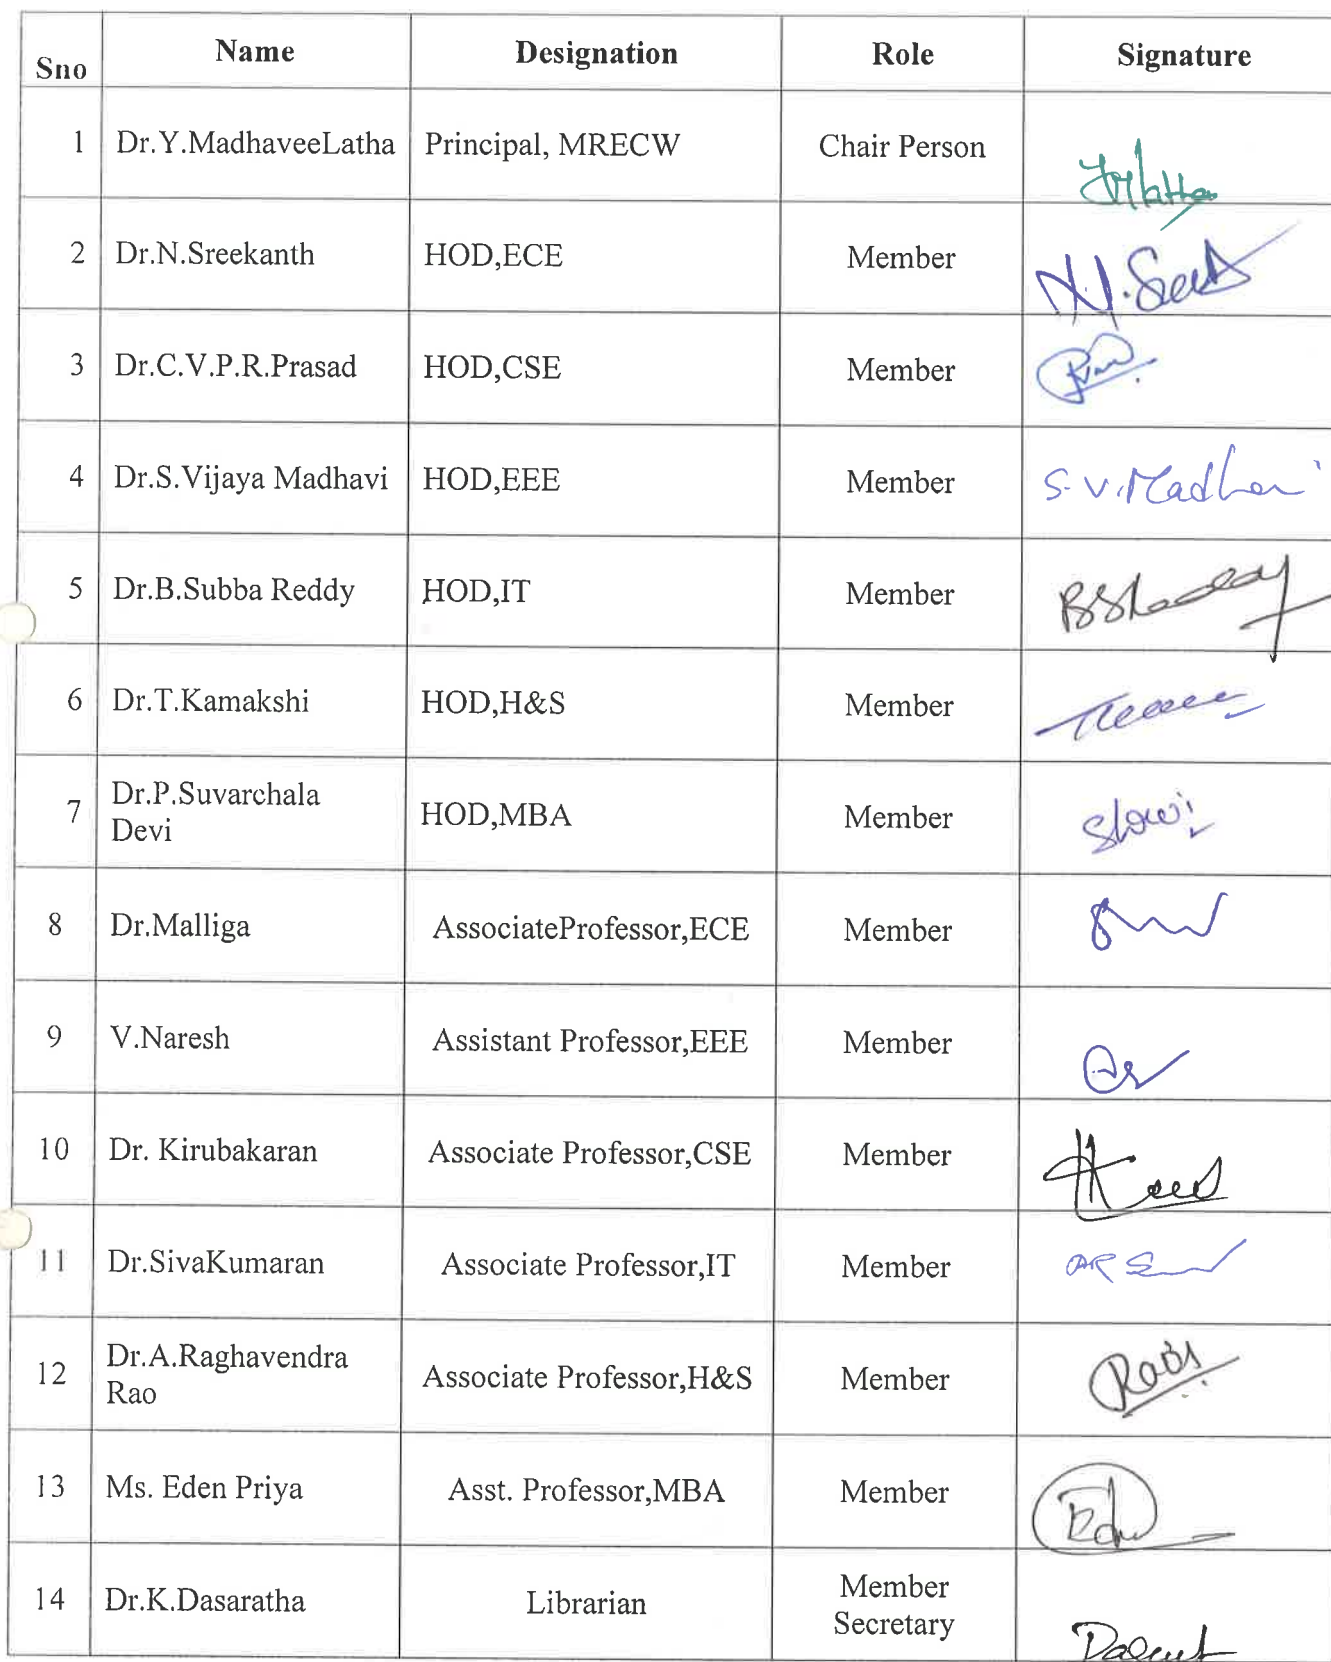 Sno Name Designation Role Signature
1 Dr.Y.MadhaveeLatha Principal, MRECW Chair Person
2 Dr.N.Sreekanth HOD,ECE Member
3 Dr.C.V.P.R.Prasad HOD,CSE Member
4 Dr.S.Vijaya Madhavi HOD,EEE Member S.V.Madhavi
5 Dr.B.Subba Reddy HOD,IT Member
6 Dr.T.Kamakshi HOD,H&S Member
7 Dr.P.Suvarchala
Devi HOD,MBA Member
8 Dr.Malliga AssociateProfessor,ECE Member
9 V.Naresh Assistant Professor,EEE Member
10 Dr. Kirubakaran Associate Professor,CSE Member
11 Dr.SivaKumaran Associate Professor,IT Member
12 Dr.A.Raghavendra
Rao Associate Professor,H&S Member
13 Ms. Eden Priya Asst. Professor,MBA Member
14 Dr.K.Dasaratha Librarian Member
Secretary